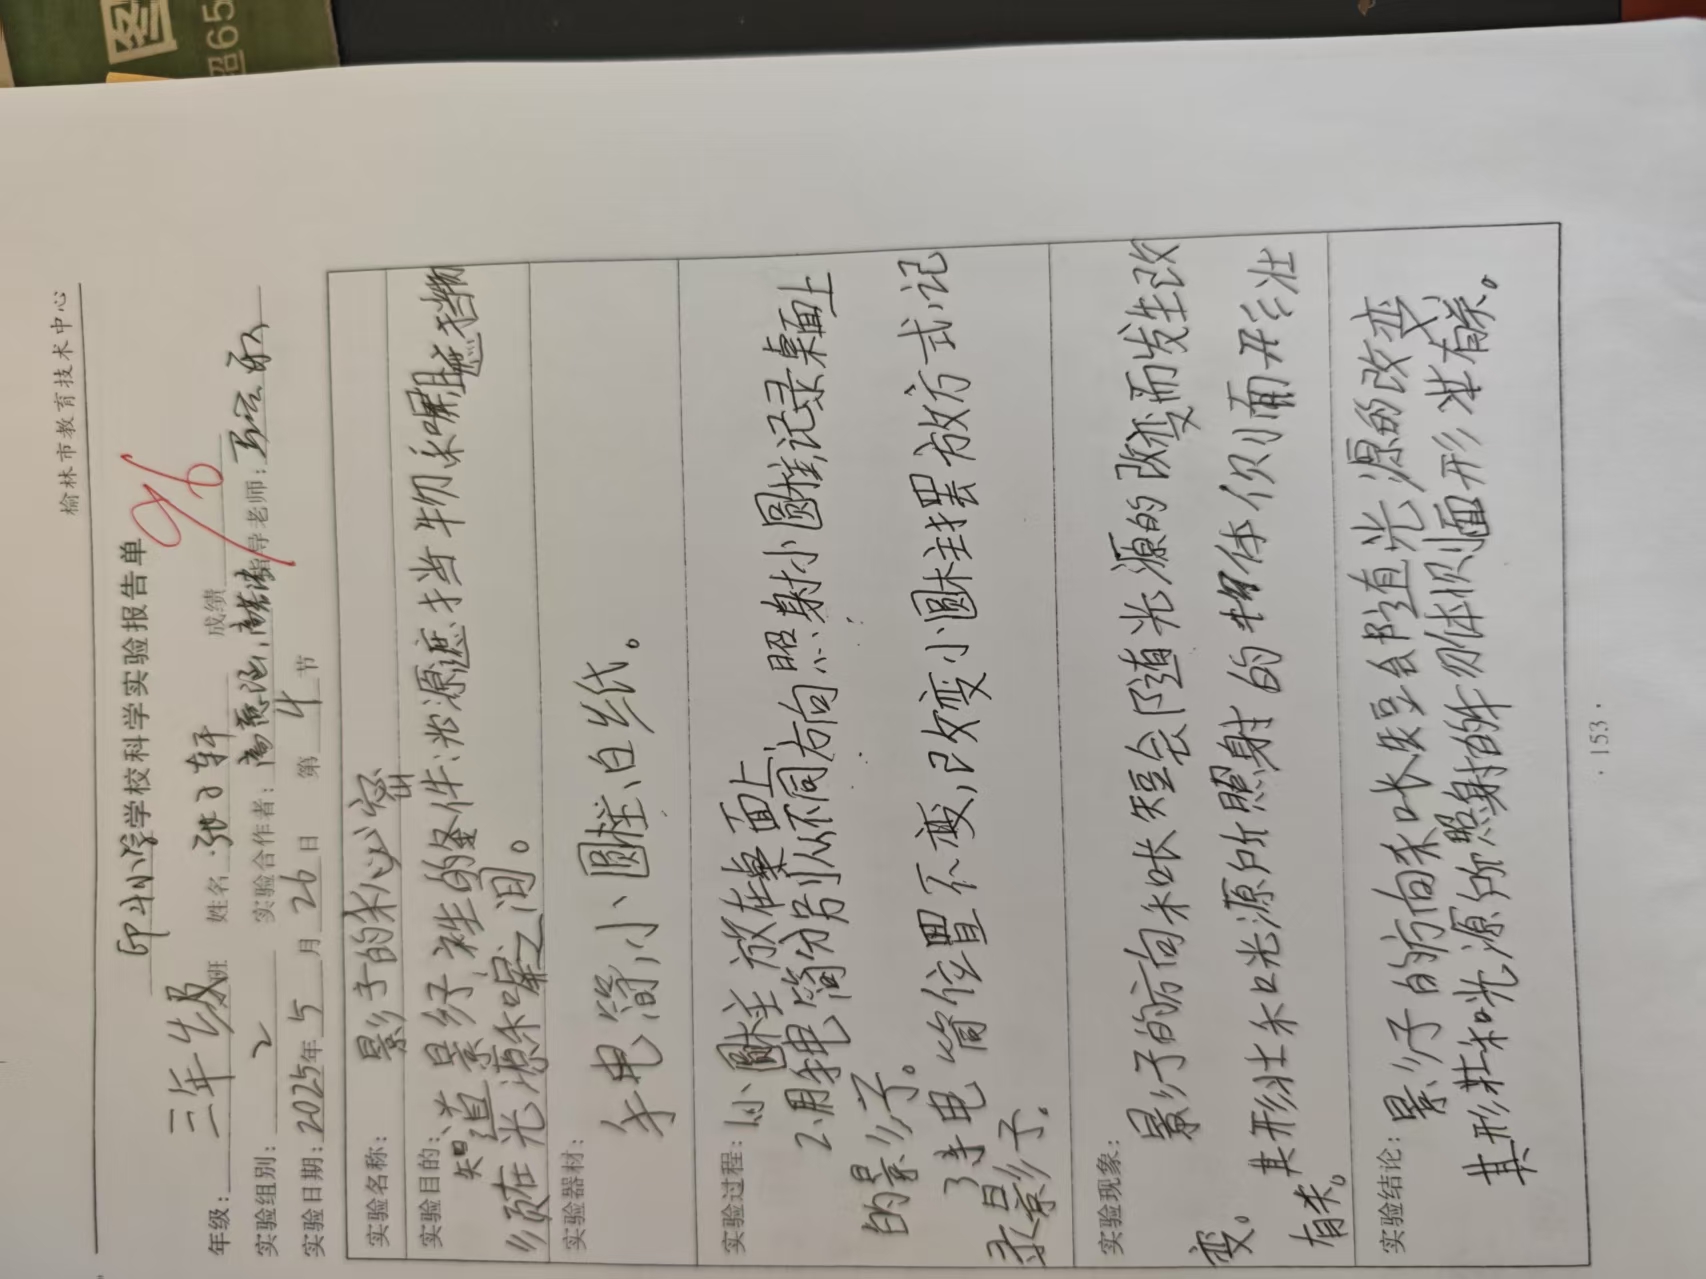 图
照65
榆林市教育技术中心
印斗小学学校科学实验报告单
年级：三年级班 姓名 张子轩 成绩 96
实验组别：2 实验合作者：高
指导老师：
实验日期：2025年5月26日 第4节
实验名称：影子的秘密
实验目的：知道影子产生的条件：光源遮挡物和屏且遮挡物
必须在光源和屏之间。
实验器材：手电筒、小圆柱、白纸。
实验过程：1.小圆柱放在桌面上
2.用手电筒分别从不同方向照射小圆柱，记录桌面上
的影子。
3手电筒位置不变，改变小圆柱摆放方式，记
录影子。
实验现象：影子的方向和长短会随着光源的改变而发生改
变。其形状和光源所照射的物体侧面形状
有关。
实验结论：影子的方向和长短会随着光源的改变
其形状和光源所照射的物体侧面形状有关。
·153·